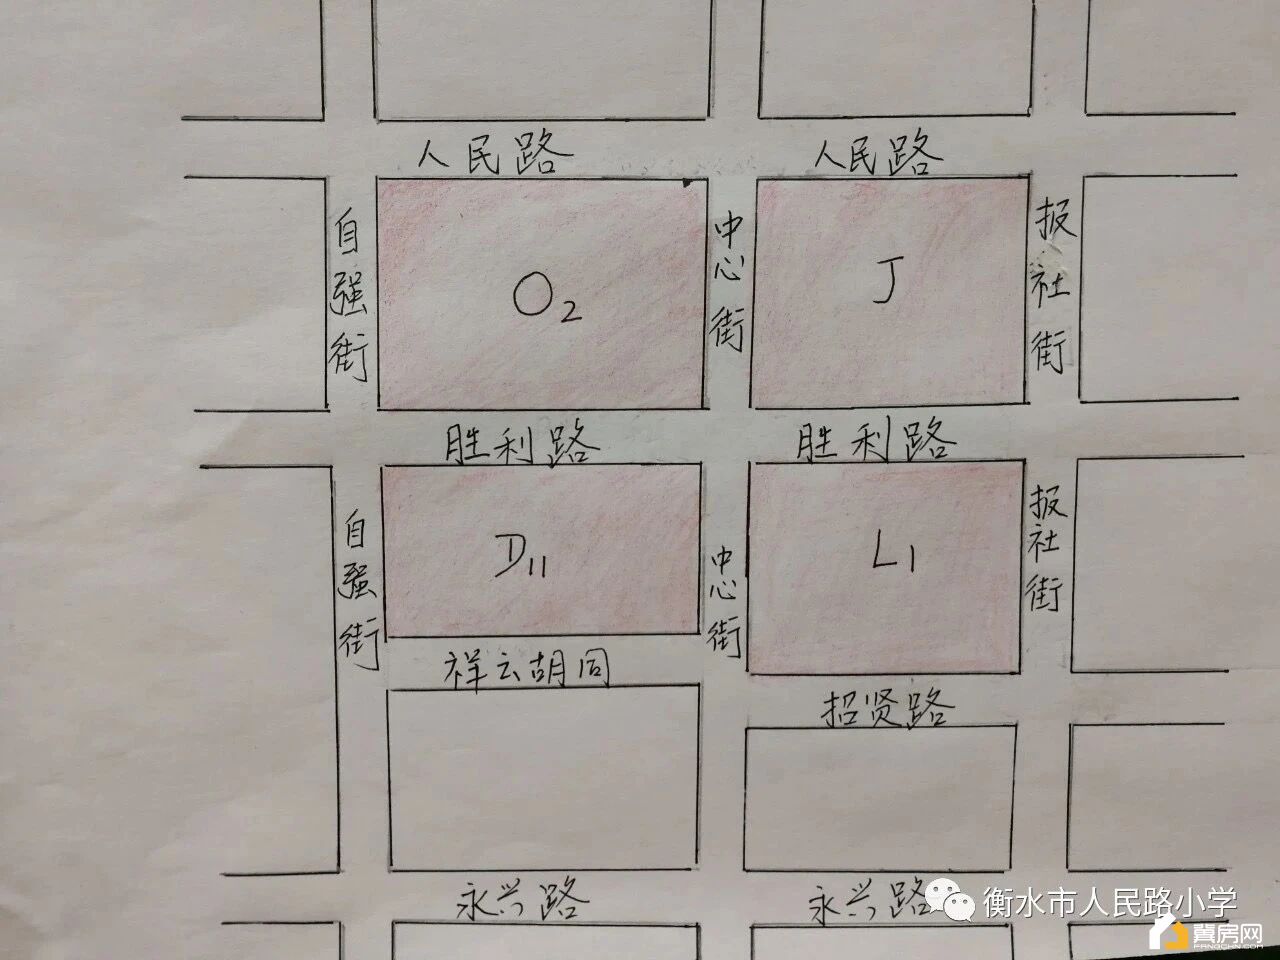 人民路
人民路
自强街
O2
中心街
J
报社街
胜利路
胜利路
自强街
D11
中心街
L1
报社街
祥云胡同
招贤路
永兴路
永兴路
衡水市人民路小学
冀房网
FANGCHN.COM